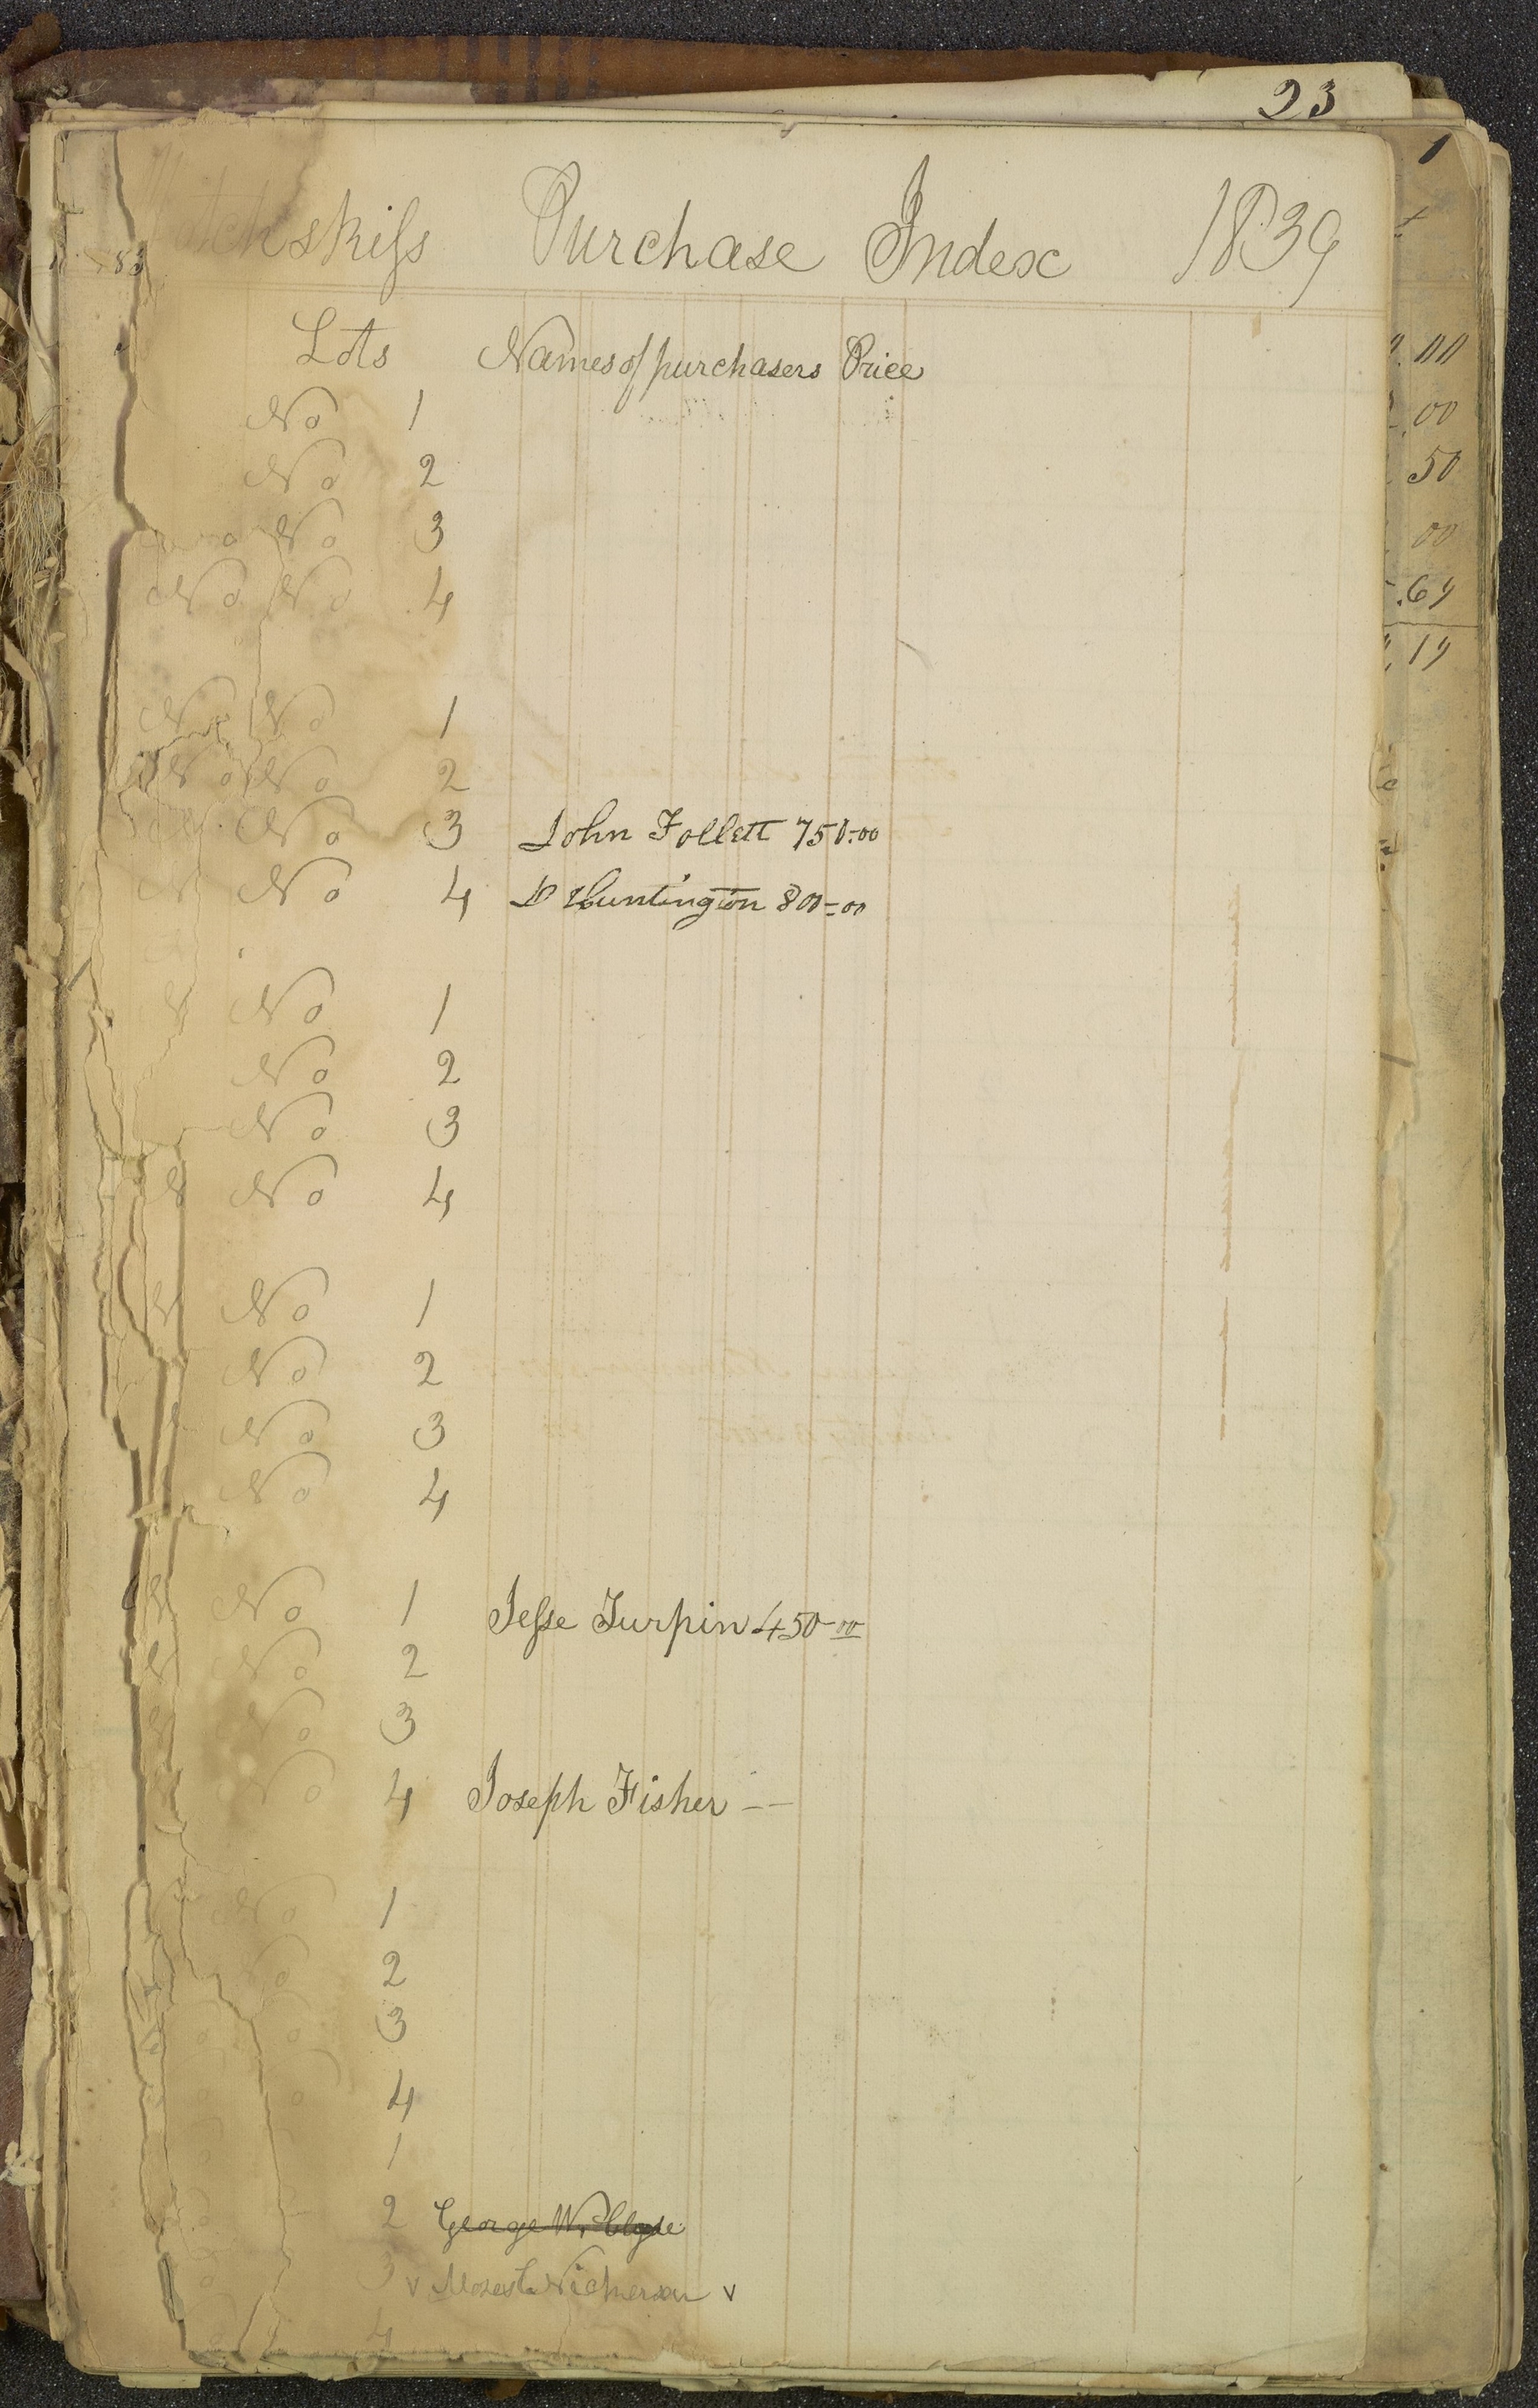 23
1
Hotchskiſs Purchase Index 1839
Lots Names of purchasers Price
No 1
No 2
No 3
No No 4
No No 1
No No 2
No 3 John Follett 750=00
No 4 D Huntington 800=00
No 1
No 2
No 3
No 4
No 1
No 2
No 3
No 4
No 1 Jeſse Turpin 450-00
No 2
No 3
No 4 Joseph Fisher --
No 1
No 2
3
4
1
2 George W. Clyde
3 v Moses Nickerson v
4
00
00
50
00
.69
.19